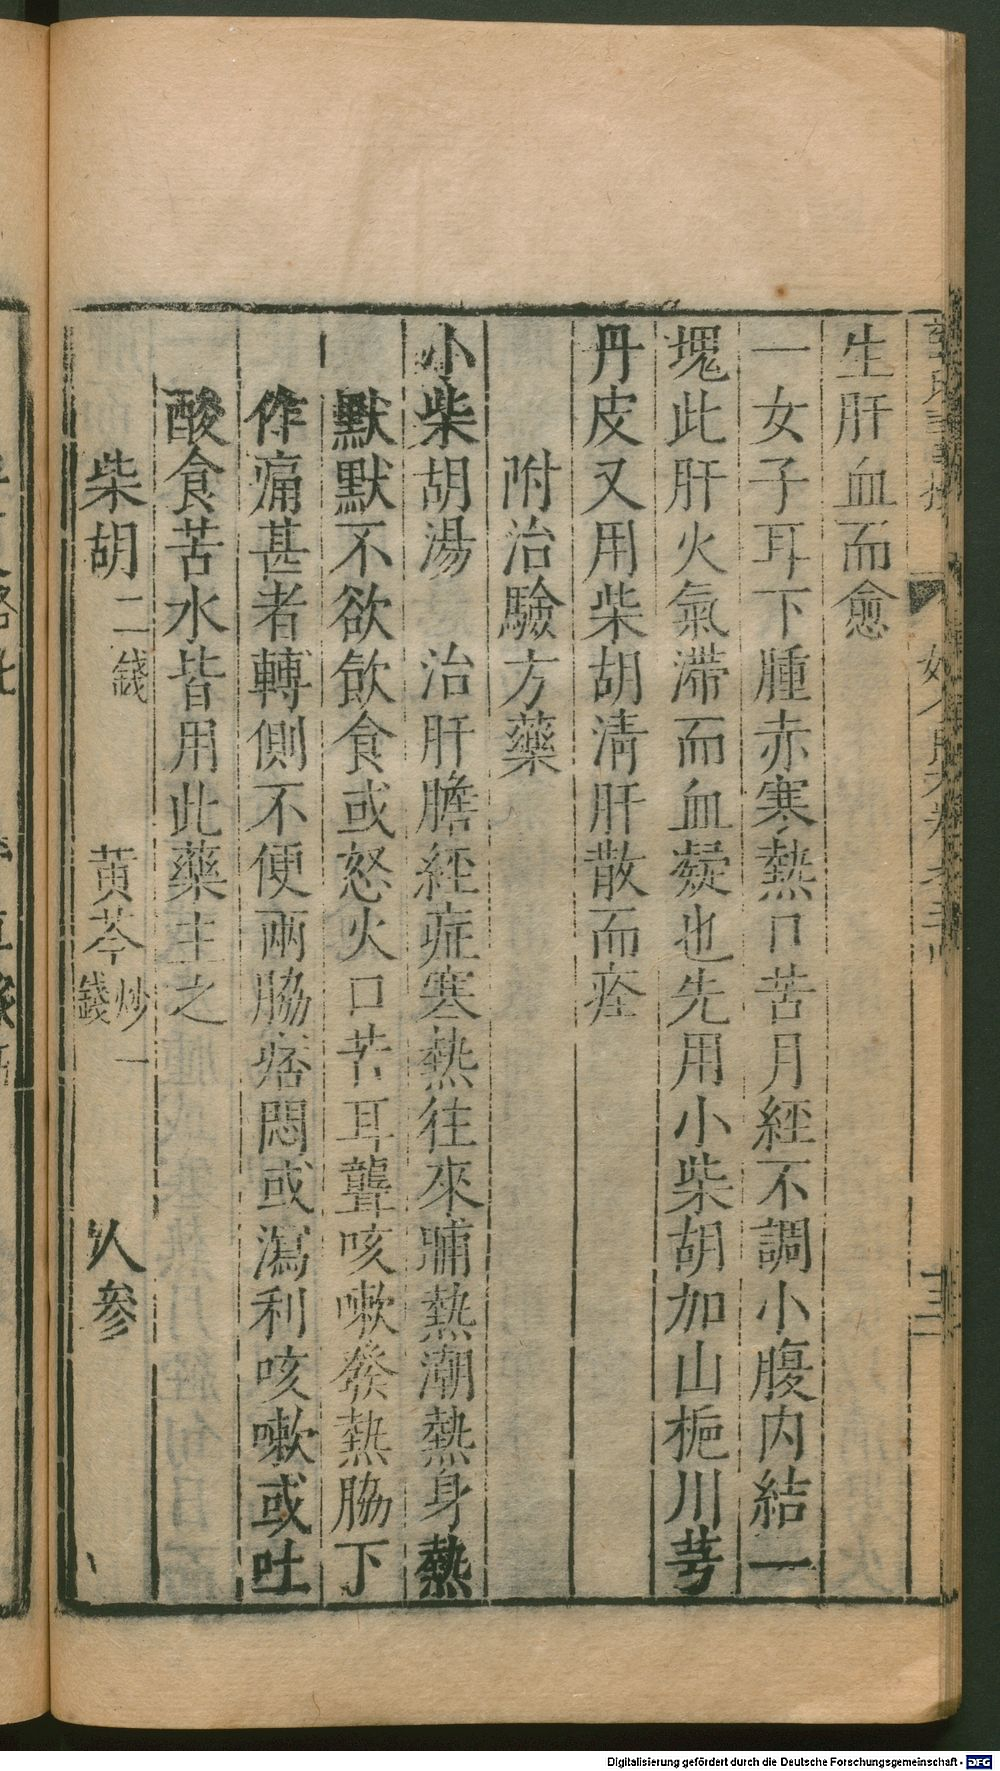 生肝血而愈
一女子耳下腫赤寒熱口苦月經不調小腹內結一
塊此肝火氣滯而血凝也先用小柴胡加山梔川芎
丹皮又用柴胡清肝散而痊
附治驗方藥
小柴胡湯　治肝膽經症寒熱往來晡熱潮熱身熱
默默不欲飲食或怒火口苦耳聾咳嗽發熱脇下
作痛甚者轉側不便兩脇痞悶或瀉利咳嗽或吐
酸食苦水皆用此藥主之
柴胡二錢　黄芩炒一錢　人參
Digitalisierung gefördert durch die Deutsche Forschungsgemeinschaft - DFG